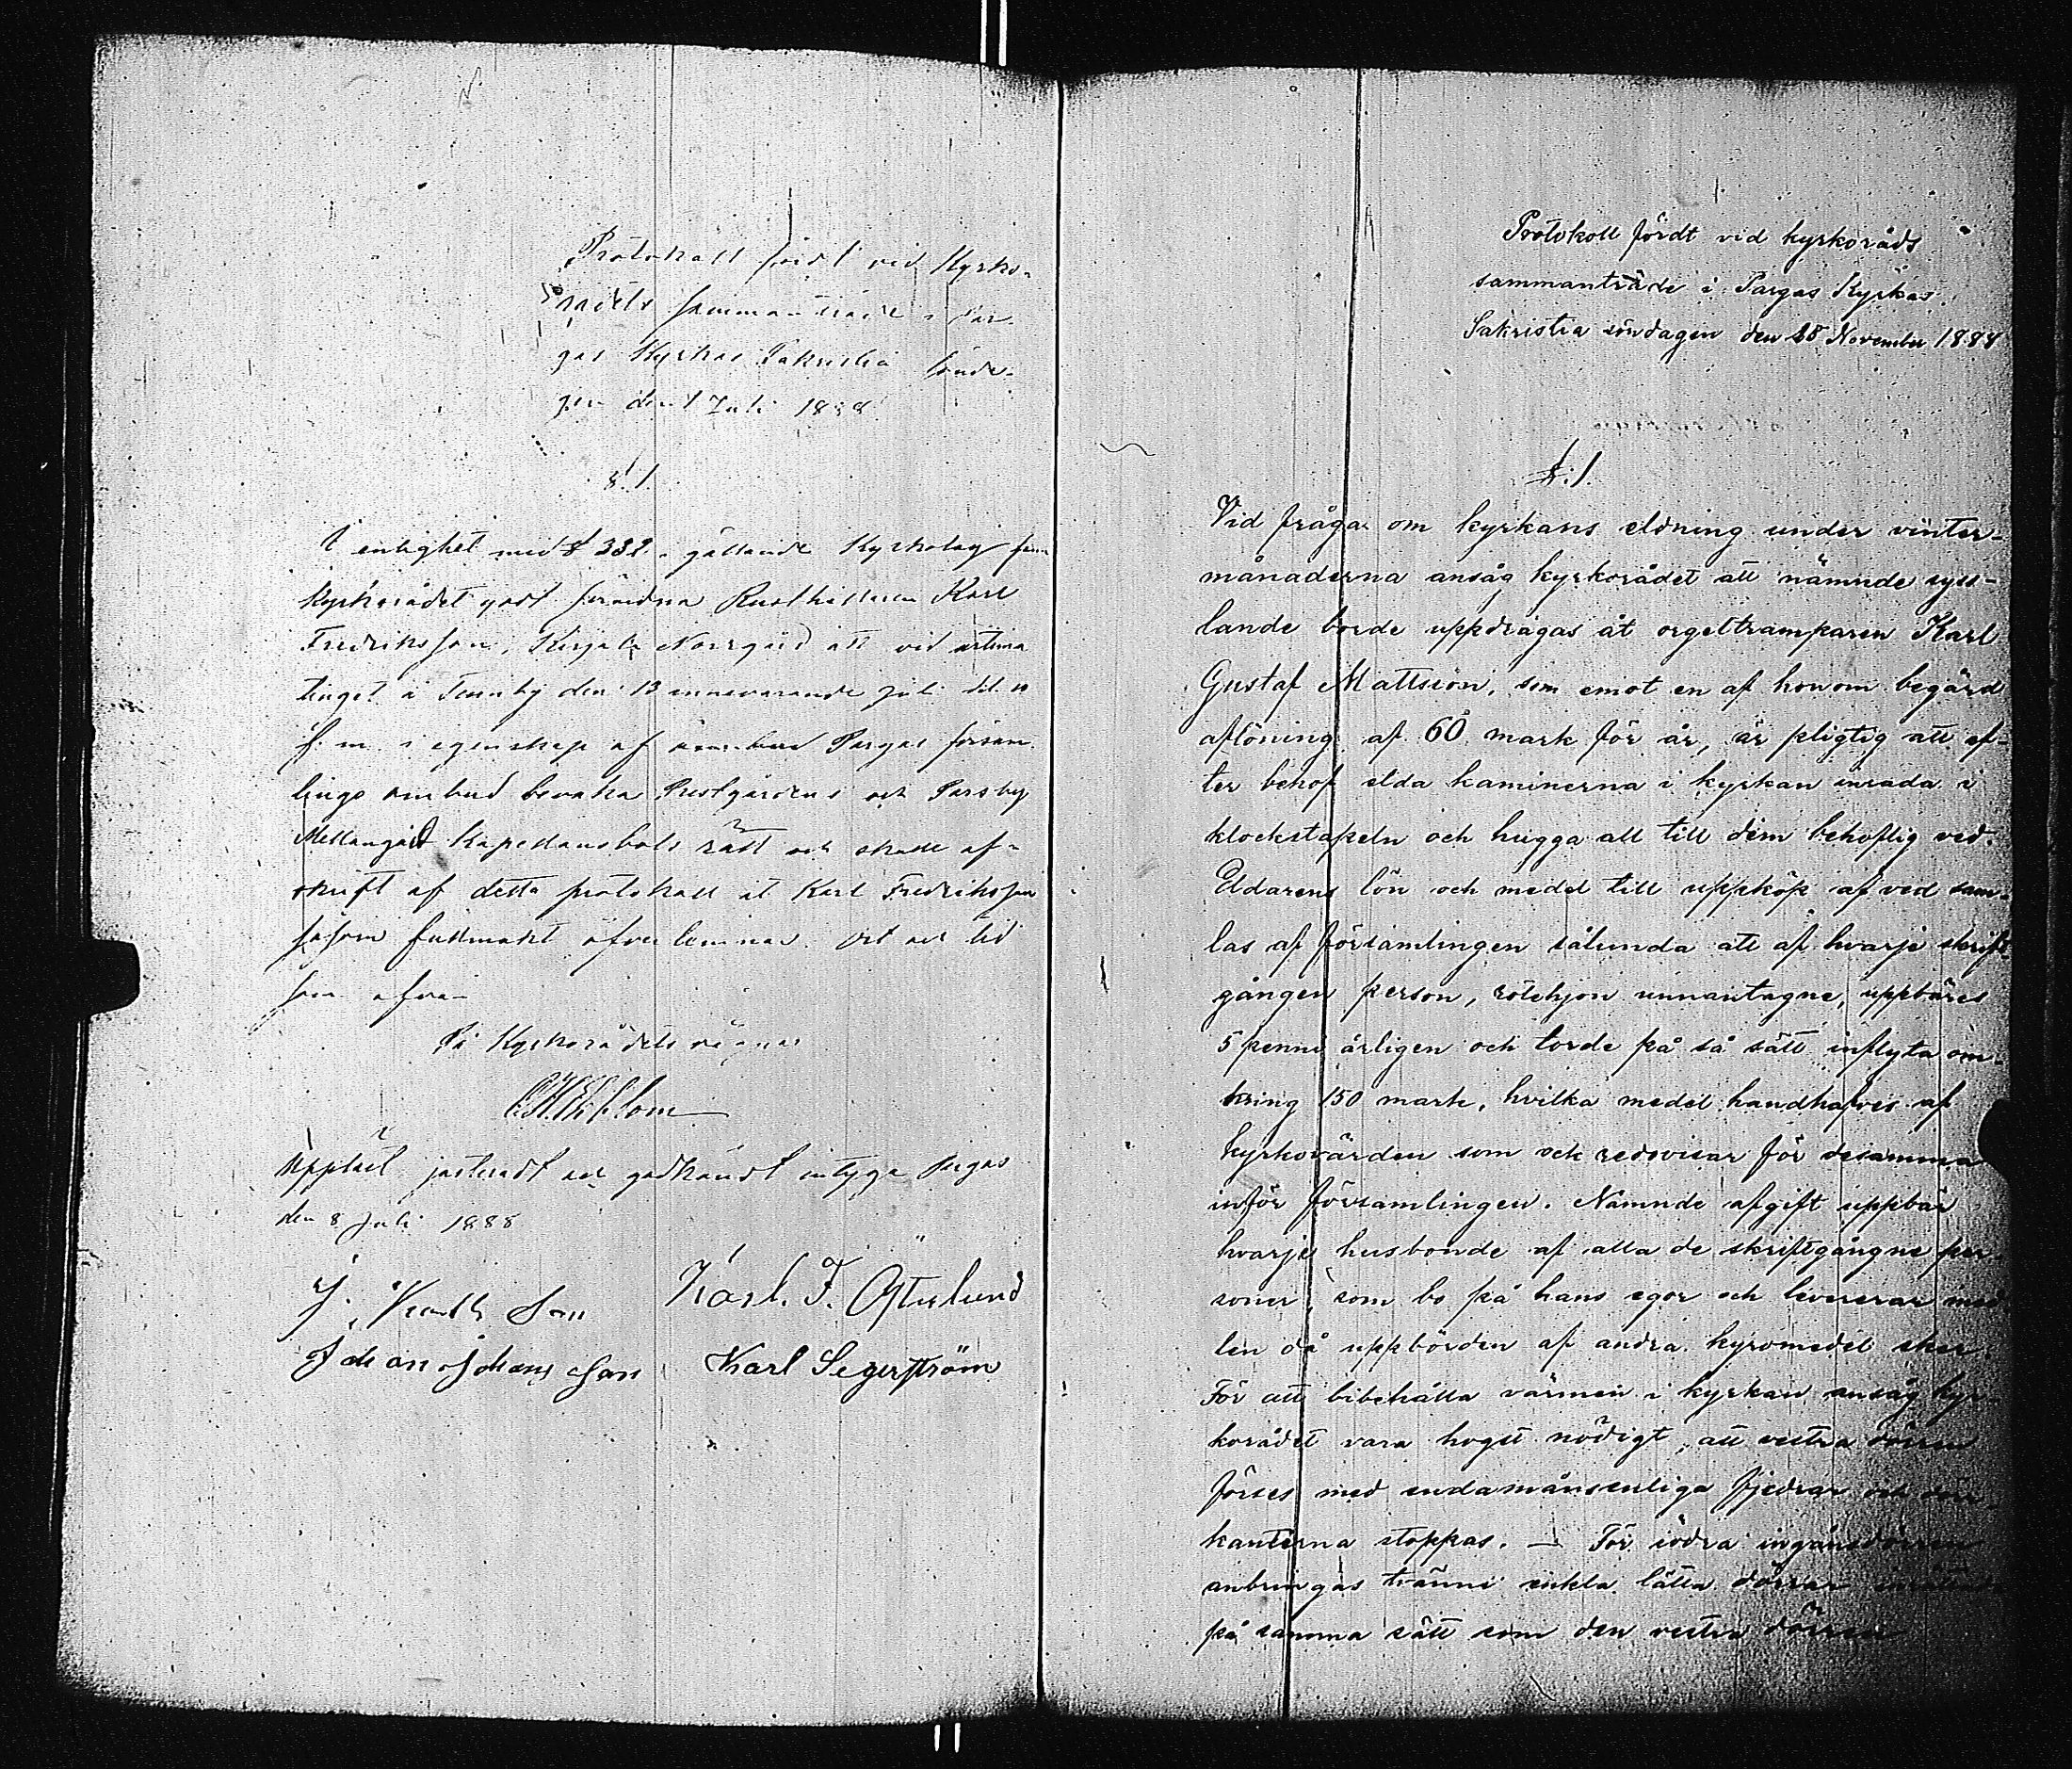 Protokoll fördt vid Kyrko-
rådets sammanträde i Par-
gas Kyrkas Sakristia sönda-
gen den 1 Juli 1888
§.1.
I enlighet med § 332 gällande Kyrkolag fann
Kyrkorådet godt förordna Rusthållaren Karl
Fredriksson, Kirjala Norrgård att vid
tinget i Tennby den 13 innevarande Juli kl. 10
f. m. i egenskap af Pargas försam-
lings ombud bevaka Prestgårdens och Parsby
Mellangård Kapellansbols rätt och skall af-
skrift af detta protokoll åt Karl Fredriksson
såsom fullmakt öfverlemnas. Ort och tid
som ofvan
På Kyrkorådets vägnar
Uppläst justeradt och godkändt intyga Pargas
den 8 Juli 1888
Karl. F. Österlund
Johan Johansson Karl Segerström
Protokoll fördt vid kyrkoråds
sammanträde i Pargas Kyrkas
Sakristia söndagen den 18 November 1888
§.1.
Vid frågan om kyrkans eldning under vinter-
månaderna ansåg kyrkorådet att nämnde syss-
lande borde uppdragas åt orgeltramparen Karl
Gustaf Mattsson, som emot en af honom begärd
aflöning af 60 mark för år, är pligtig att ef-
ter behof elda kaminerna i kyrkan inrada i
klockstapeln och hugga all till dem behöflig ved.
Eldarens lön och medel till uppköp af ved sam-
las af församlingen sålunda att af hvarje skrift-
gången person, rotehjon unnantagne, uppbäres
5 penni årligen och torde på så sätt inflyta om-
kring 150 mark, hvilka medel handhafves af
kyrkovärden som ock redovisar för desamma
inför församlingen. Nämnde afgift uppbär
hvarje husbonde af alla de skriftgångne per
soner, som bo på hans egor och levererar med
len då uppbörden af andra kyromedel sker.
För att bibehålla värmen i kyrkan ansåg kyr-
korådet vara högst nödigt, att vestra dörren
förses med endamånsenliga fjedrar och dörr-
kanterna stoppas. — För södra ingånsdörren
anbringas tvänne enkla lätta dörrar
på samma sätt som den vestra dörren